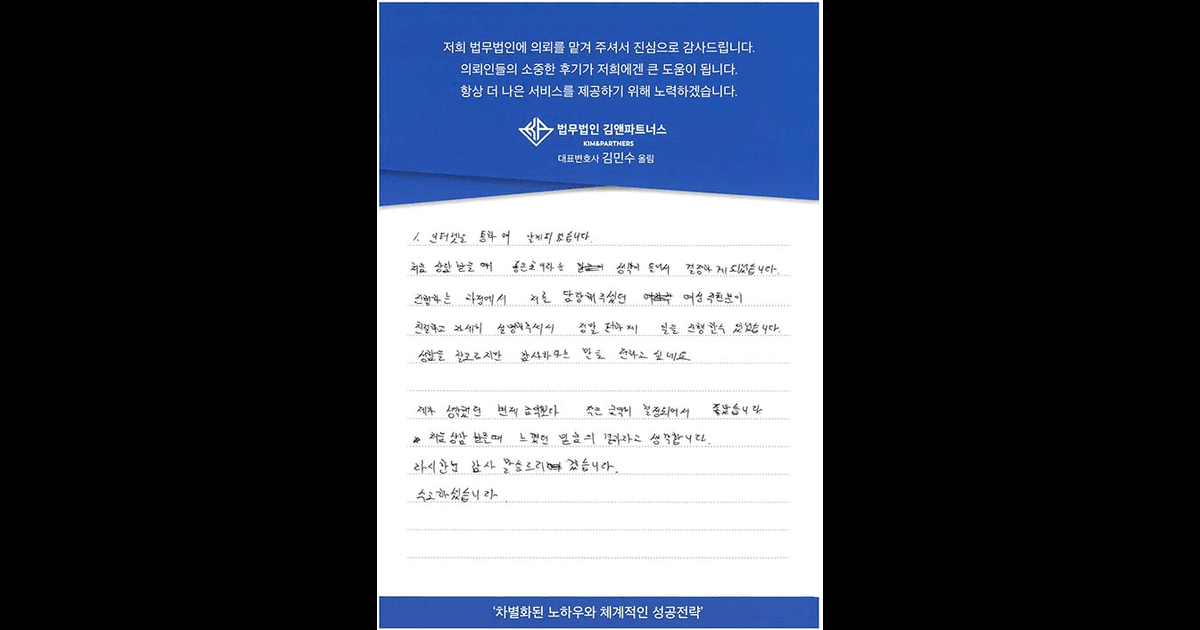 저희 법무법인에 의뢰를 맡겨 주셔서 진심으로 감사드립니다.
의뢰인들의 소중한 후기가 저희에겐 큰 도움이 됩니다.
항상 더 나은 서비스를 제공하기 위해 노력하겠습니다.
법무법인 김앤파트너스
KIM&PARTNERS
대표변호사 김민수 올림
1. 인터넷을 통하여 알게되었습니다.
처음 상담 받을 때 좋은 곳이라는 생각이 들어서 결정하게 되었습니다.
진행하는 과정에서 저를 담당해주셨던 여성 직원분이
친절하고 자세히 설명해주셔서 정말 편하게 일을 진행할수 있었습니다.
성함을 잘모르지만 감사하다는 말을 전하고 싶네요
제가 생각했던 변제 금액보다 적은 금액이 결정되어서 좋았습니다
처음 상담 받을때 느꼈던 믿음의 결과라고 생각합니다.
다시한번 감사 말씀드리겠습니다.
수고하셨습니다.
'차별화된 노하우와 체계적인 성공전략'